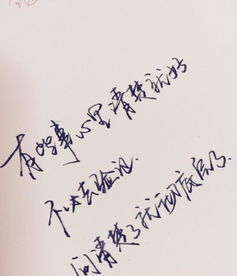 有些事心里清楚就好
不必去验证
问清楚了就到底层了